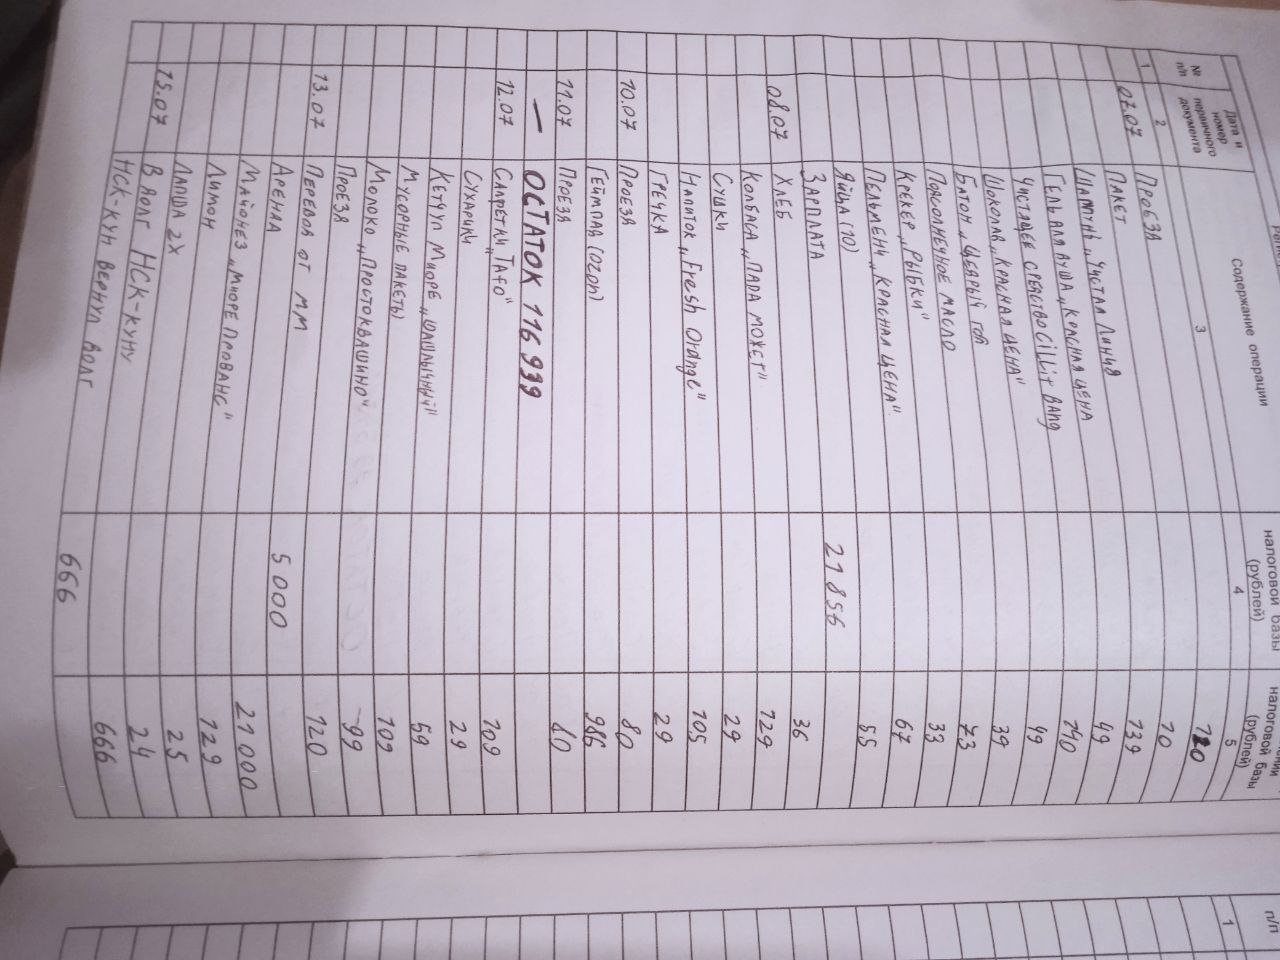 Дата и номер первичного документа
Содержание операции
налоговой базы (рублей)
налоговой базы (рублей)
№ п/п
1 2 3 4 5
07.07 Проезд 120
Пакет 10
Шампунь „Чистая Линия 139
Гель для душа „Красная цена 49
Чистящее средство Cillit Bang 140
Шоколад „Красная цена" 49
Батон „Щедрый год 39
Подсолнечное масло 73
Крекер „Рыбки" 33
Пельмени „Красная цена" 67
Яйца (10) 55
Зарплата 21 856
08.07 Хлеб 36
Колбаса „Папа может" 129
Сушки 29
Напиток „Fresh Orange" 105
Гречка 29
10.07 Проезд 80
Геймпад (ozon) 986
11.07 Проезд 80
— ОСТАТОК 116 939
12.07 Салфетки „Tafo" 109
Сухарики 29
Кетчуп Mиоре „Шашлычный" 59
Мусорные пакеты 109
Молоко „Простоквашино" 99
13.07 Проезд 120
Перевод от ММ 5 000
Аренда 21 000
Майонез „Mиоре Прованс" 129
Лимон 25
Лапша 2х 24
15.07 В долг НСК-куну 666
НСК-кун вернул долг 666
п/п
1